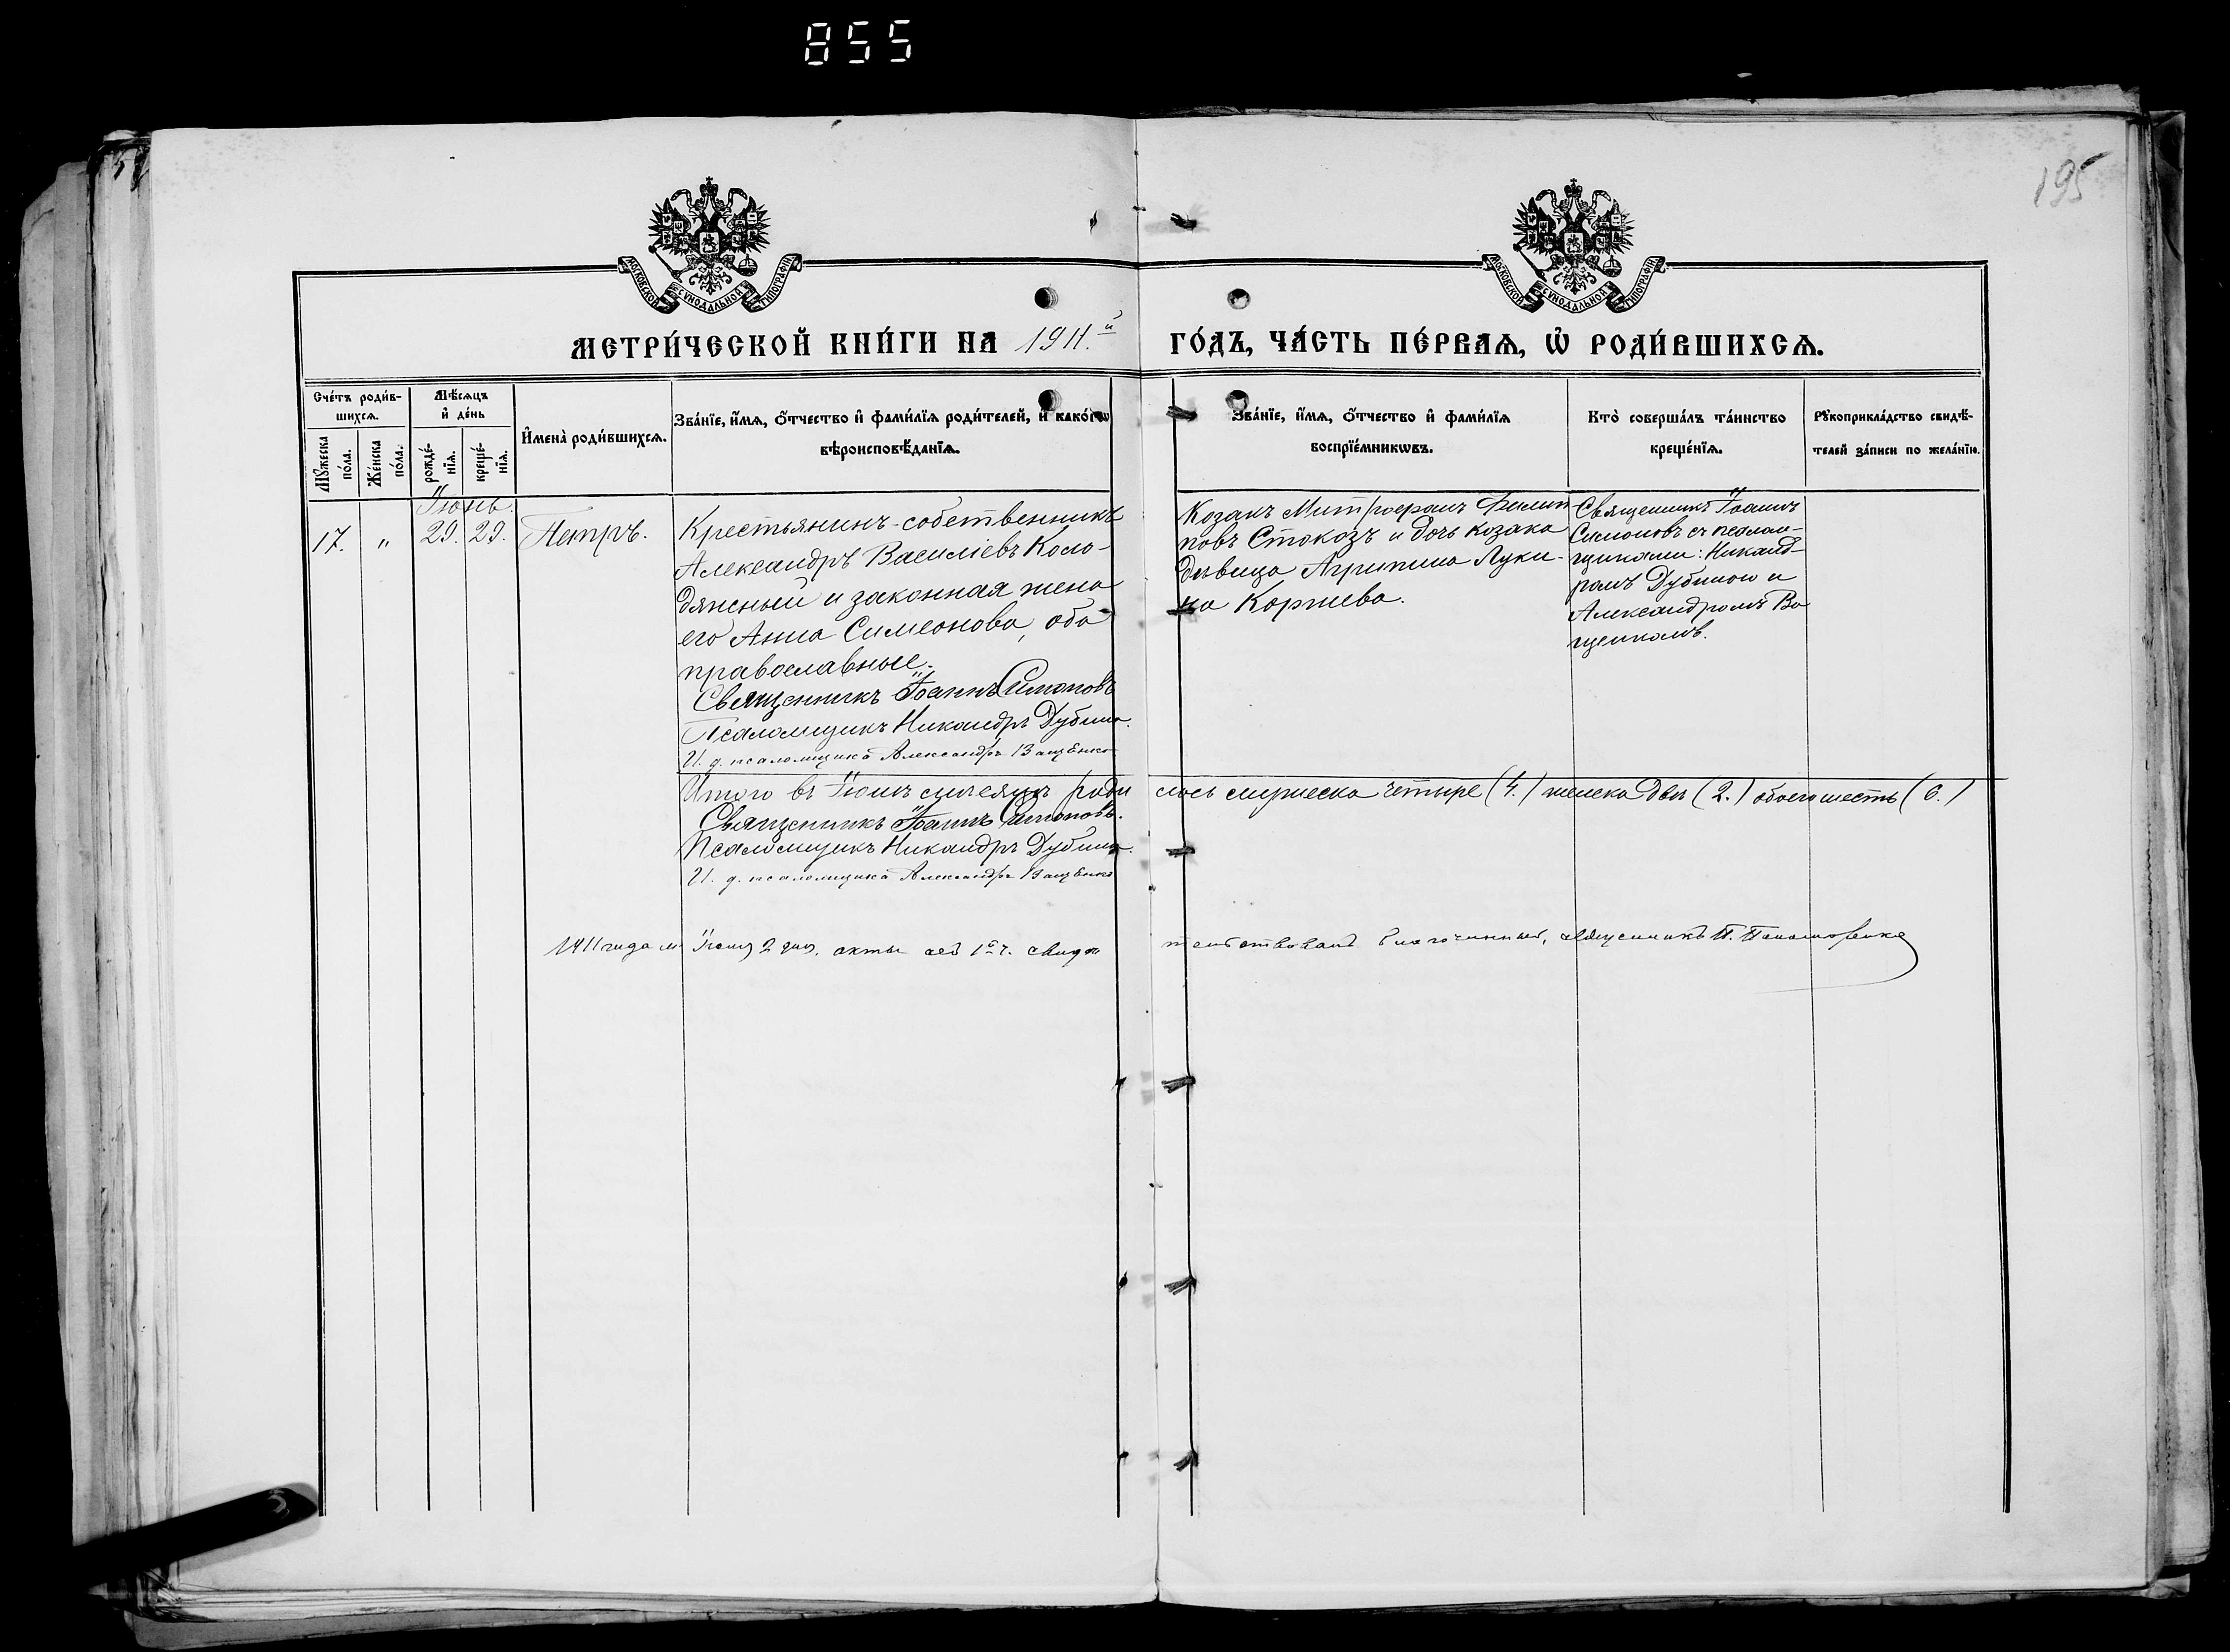 855
195
МОСКОВСКОЙ СѴНОДАЛЬНОЙ ТИПОГРАФІИ
МОСКОВСКОЙ СѴНОДАЛЬНОЙ ТИПОГРАФІИ
МЕТРИ́ЧЕСКОЙ КНИ́ГИ НА 1911.й ГО́ДЪ, ЧА́СТЬ ПЕ́РВАѦ, Ѡ҆ РОДИ́ВШИХСѦ.
Сче́тъ роди́в-
шихсѧ.
Мꙋ́жеска
по́ла.
Же́нска
по́ла.
Мѣ́сѧцъ
и҆ де́нь
рожде́-
нїѧ.
креще́-
нїѧ.
И҆мена̀ роди́вшихсѧ.
Зва́нїе, и҆́мѧ, ѻ҆́тчество и҆ фами́лїѧ роди́телей, и҆ како́гѡ
вѣроисповѣ́данїѧ.
Зва́нїе, и҆́мѧ, ѻ҆́тчество и҆ фами́лїѧ
воспрїе́мникѡвъ.
Кто̀ соверша́лъ та́инство
креще́нїѧ.
Рꙋкоприкла́дство свидѣ́-
телей за́писи по жела́нїю.
Іюнь.
17. " 29. 29. Петръ.
Крестьянинъ-собственникъ
Александръ Василіевъ Коло-
дяжный и законная жена
его Анна Симеонова, оба
православные.
Священникъ Іоаннъ Симоновъ
Псаломщикъ Никандръ Дубина.
И. д. псаломщика Александръ Ващенко
Козакъ Митрофанъ Филип
повъ Стокозъ и дочь козака
дѣвица Агрипина Луки-
на Коржева.
Священникъ Іоаннъ
Симоновъ съ псалом-
щиками: Никанд-
ромъ Дубиною и
Александромъ Ва
щенкомъ.
Итого въ Іюнѣ мѣсяцѣ роди лось мужеска четыре (4.) женска две (2.) обоего шесть (6.)
Священникъ Іоаннъ Симоновъ.
Псаломщикъ Никандръ Дубина.
И. д. псаломщика Александръ Ващенко
1911 года м. Іюля 2 дня. акты сей 1й ч. свидѣ тельствовалъ Благочинный, священникъ П. Пономаренко